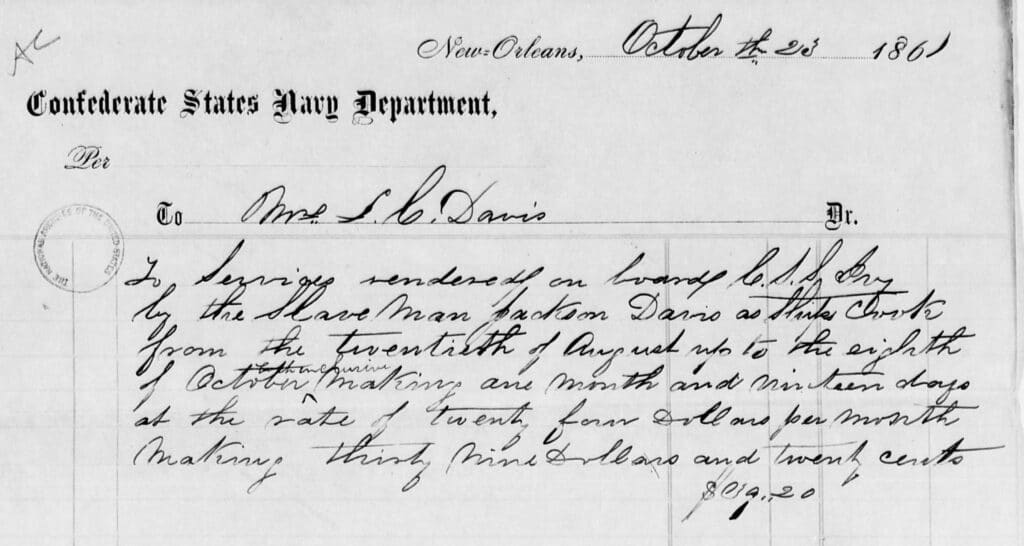 AC
New=Orleans, October th 23 1861
Confederate States Navy Department,
Per
To Mrs L. C. Davis Dr.
THE NATIONAL ARCHIVES OF THE UNITED STATES
To Services rendered on board C.S.S. Ivy
by the Slave Man Jackson Davis as Ships Cook
from the twentieth of August up to the eighth
both inclusive
of October making one month and nineteen days
at the rate of twenty four Dollars per month
Making thirty nine Dollars and twenty cents
$39..20